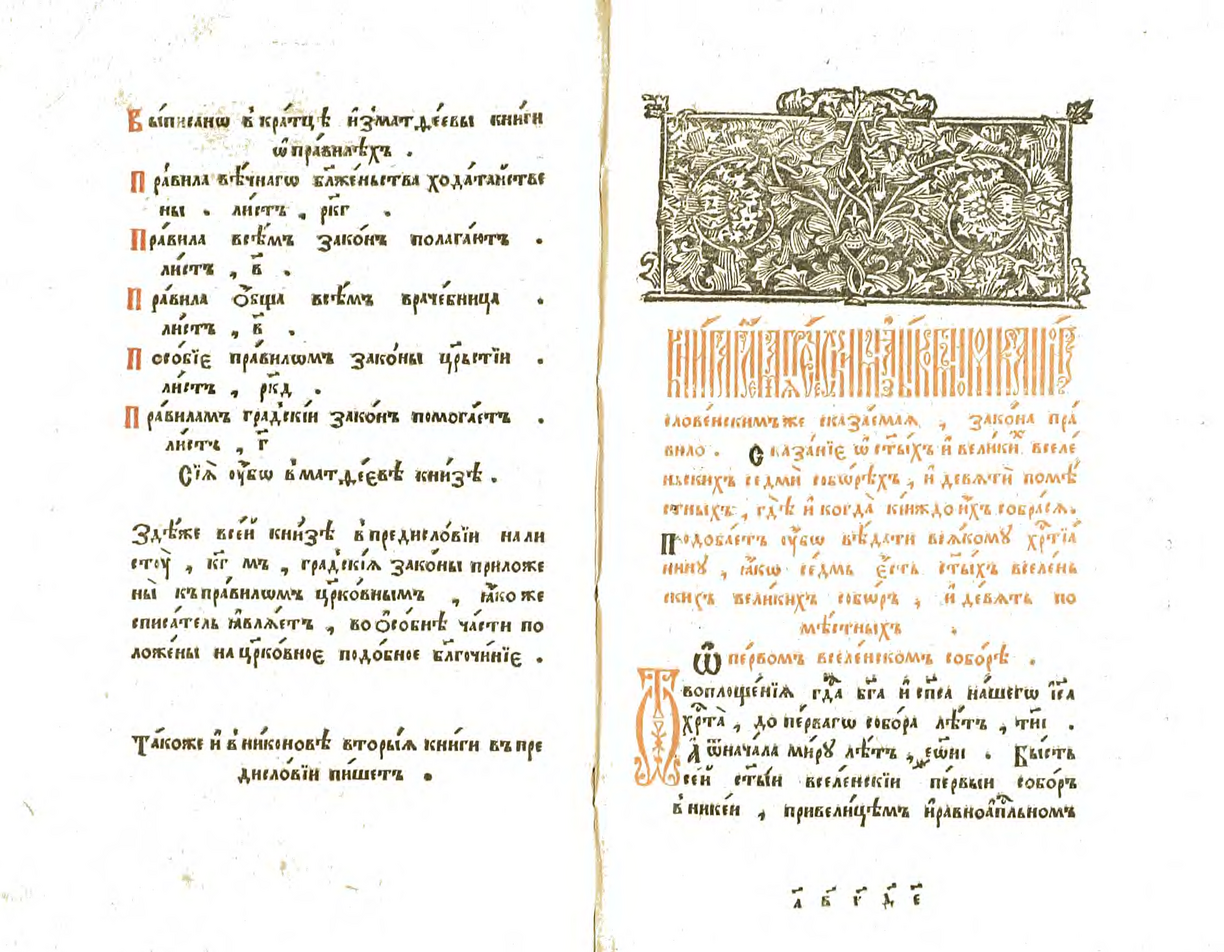 Выписанѡ в̾кра́тцѣ и҆з̾матѳе́евы кни́ги
ѡ҆пра́вилѣхъ .
Пра́вила вѣ́чнагѡ бл҃же́ньства хода́таистве
ны . ли́стъ , рк҃г .
Пра́вила всѣ́мъ зако́нъ полага́ютъ .
ли́стъ , в҃ .
Пра́вила ѻ҆́бща всѣ́мъ враче́бница .
ли́стъ , в҃ .
Посо́бїе пра́вилѡмъ зако́ны цр҃ьстїи .
ли́стъ , рк҃д .
Пра́виламъ гра́дскїи зако́нъ помога́етъ .
ли́стъ , г҃
Сїѧ̀ ᲂу҆́бѡ в̾матѳе́евѣ кни́зѣ .
Здѣ́же все́й кни́зѣ в̾предисло́вїи на ли
стᲂу̀ , к҃г мъ , гра́дскїѧ зако́ны приложе
ны̀ къ пра́вилѡмъ цр҃ко́внымъ , ꙗ҆́коже
списа́тель ꙗ҆влѧ́етъ , во ѻ҆со́бнѣ ча́сти по
ло́жены на цр҃ко́вное подо́бное бл҃гочи́нїе .
Та́коже и҆ в̾ни́коновѣ вторы́ѧ кни́ги въ пре
дисло́вїи пи́шетъ .
слове́нскимъ же сказа́емаѧ , зако́на пра́
вило . Сказа́нїе ѡ҆ ст҃ы́хъ и҆ вели́ки́х вселе́
ньскихъ седмѝ собѡ́рѣхъ , и҆ девѧтѝ помѣ́
стныхъ , гдѣ̀ и҆ когда̀ кі́иждо и҆́хъ собра́сѧ .
Подоба́етъ ᲂу҆́бѡ вѣ́дати всѧ́кому хр҃тїа́
нину , ꙗ҆́кѡ се́дмь є҆́сть ст҃ы́хъ вселе́нь
скихъ вели́кихъ собѡ́ръ , и҆ де́вѧть по
мѣ́стныхъ .
Ѡ҆ пе́рвомъ вселе́нскомъ собо́рѣ .
Ѿ воплоще́нїѧ гд҃а бг҃а и҆ сп҃са на́шегѡ і҆с҃а
хр҃та̀ , до пе́рвагѡ собо́ра лѣ́тъ , ти҃і .
А҆ ѿнача́ла ми́ру лѣ́тъ , ҂еѡ҃иі . Бы́сть
се́й ст҃ы́и вселе́нскїи пе́рвыи собо́ръ
в̾нике́и , при вели́цѣмъ и҆ равноа҆п҃льномъ
а҃ в҃ г҃ д҃ е҃